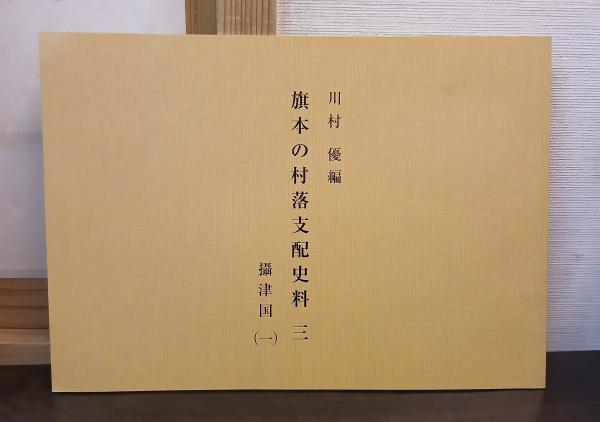 川村 優編
旗本の村落支配史料 三
攝津国 (一)